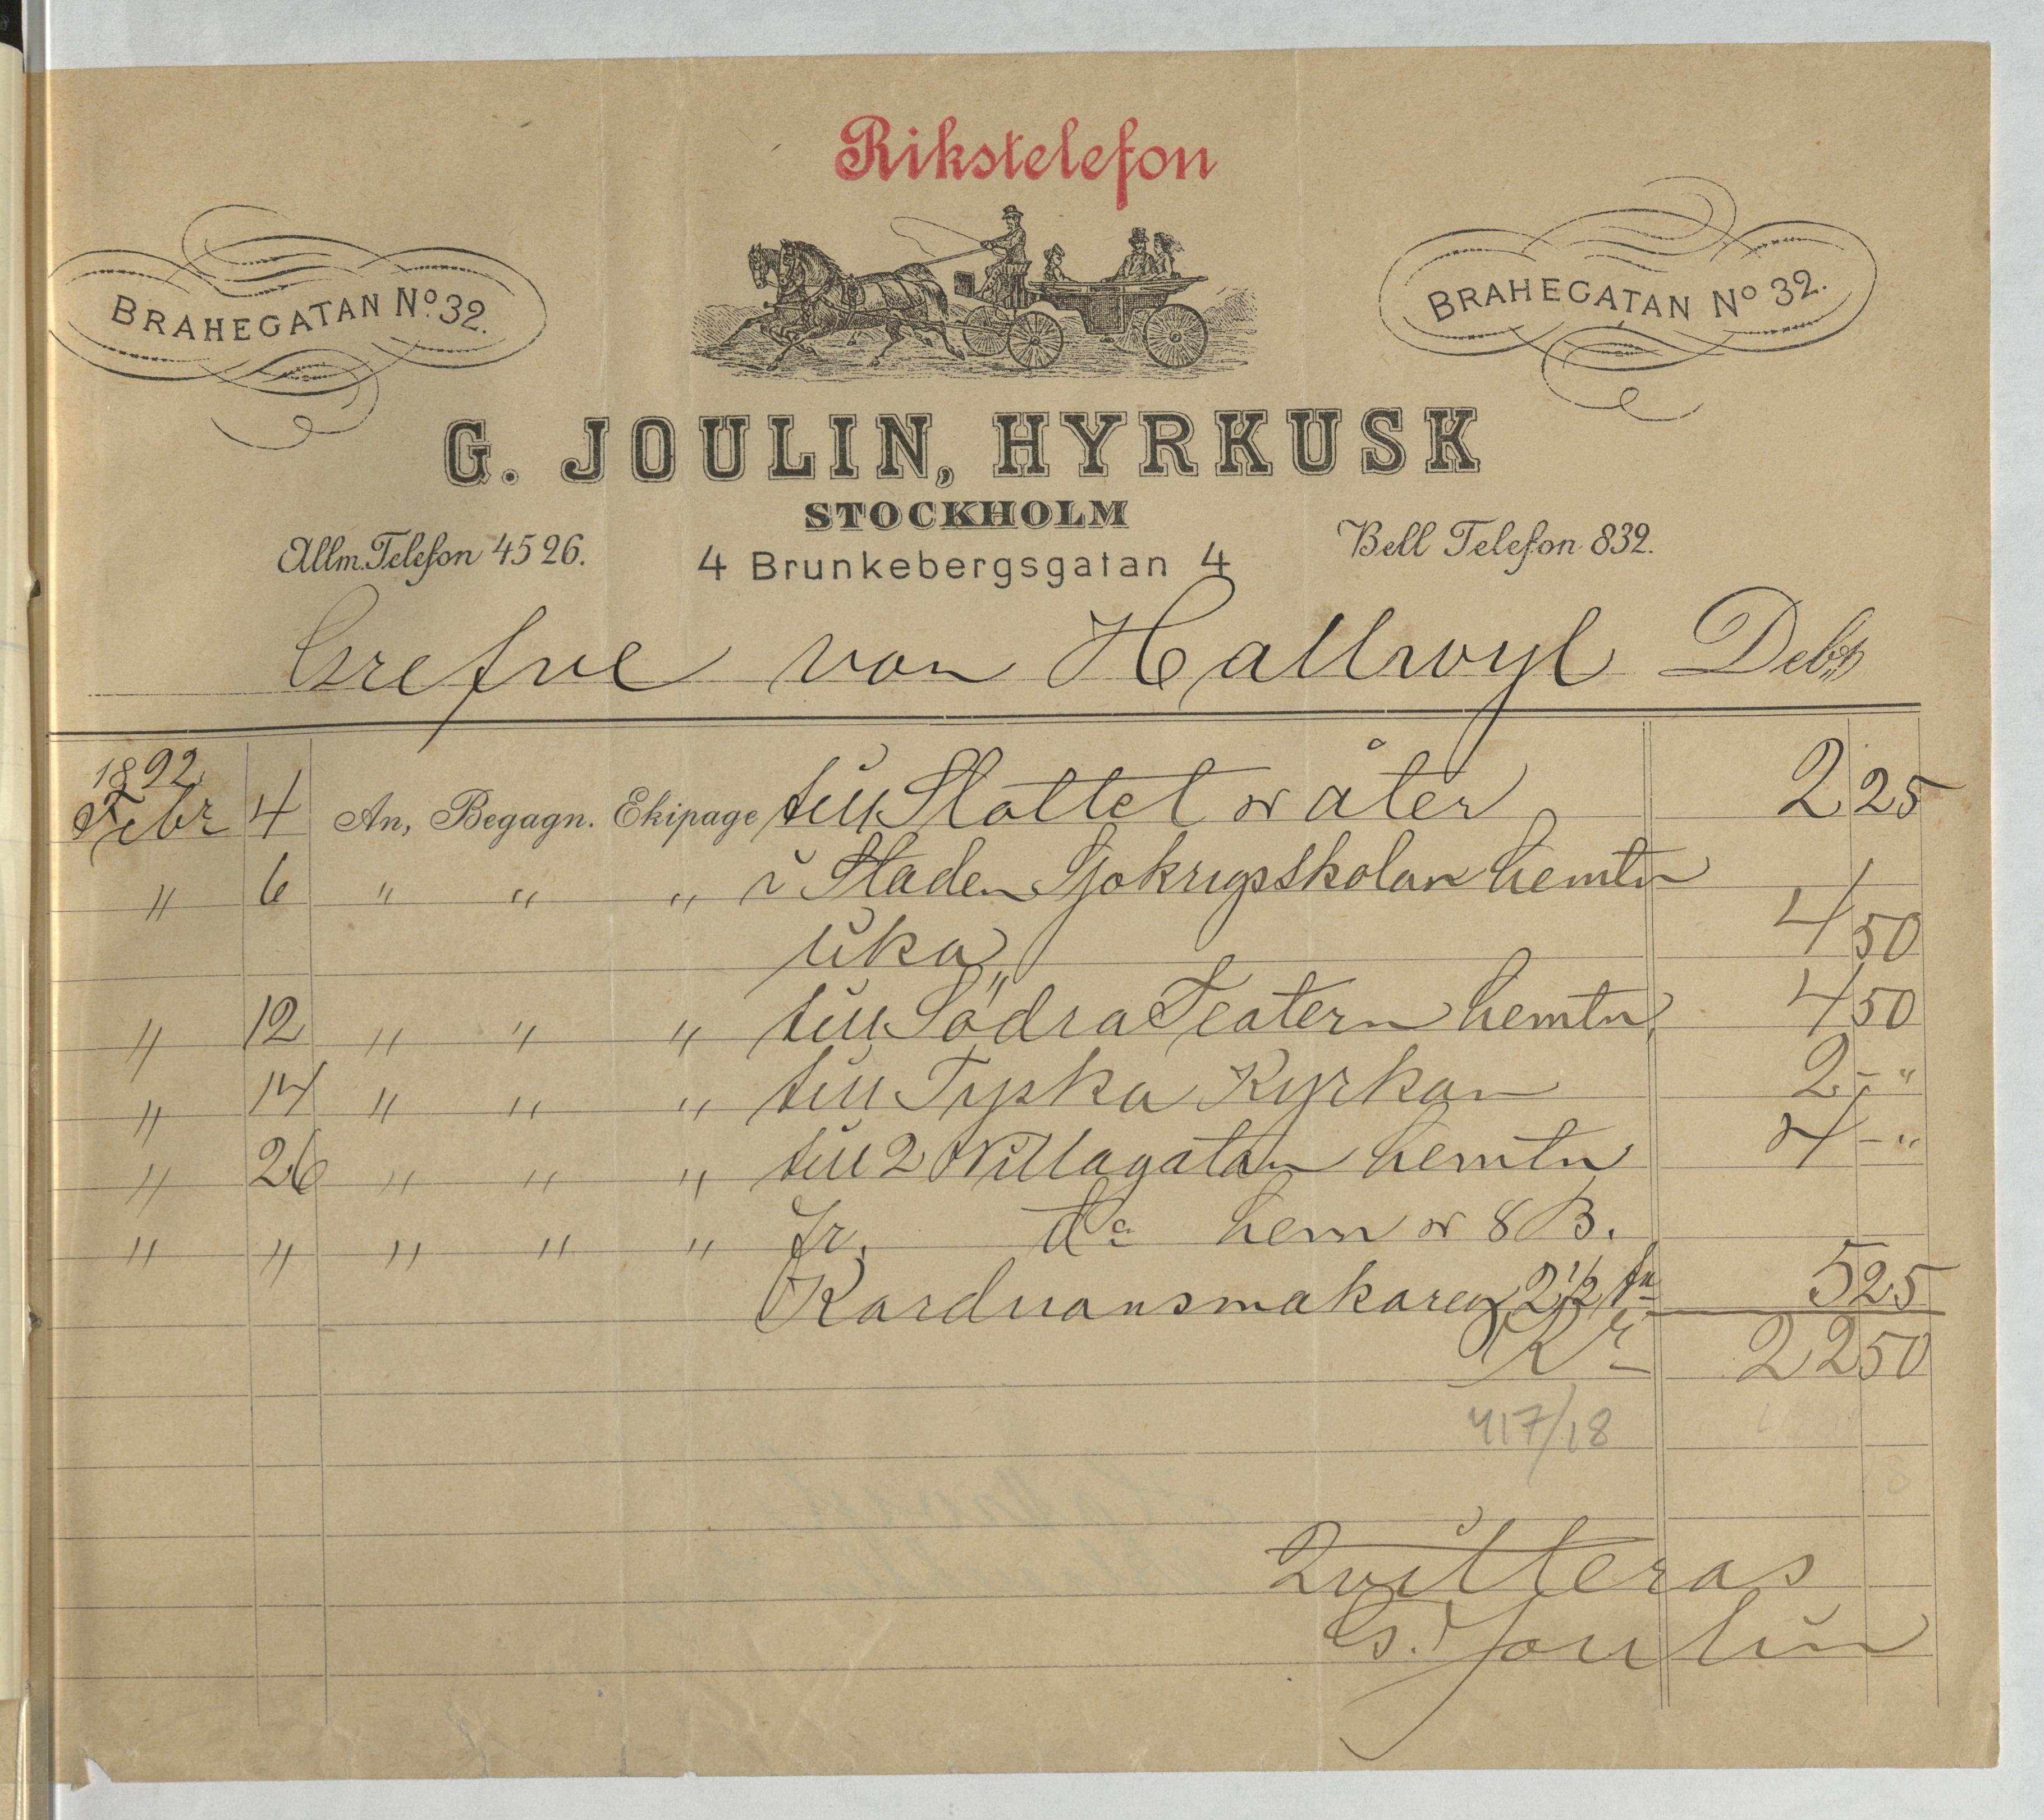 Rikstelefon
BRAHEGATAN No. 32.
BRAHEGATAN No 32.
G. JOULIN, HYRKUSK
STOCKHOLM
Allm. Telefon 4526.
4 Brunkebergsgatan 4
Bell Telefon 832.
Grefve von Hallwyl Debit
1892
Febr 4 An, Begagn. Ekipage till Slottet o åter 2 25
" 6 " " " i Staden Sjokrigsskolan hemtn
lika 4 50
" 12 " " " till Södra Teatern hemtn 4 50
" 14 " " " till Tyska Kyrkan 2 - "
" 26 " " " till 2 Villagatan hemtn 4 - "
" " " " " fr. do hem o 8 B.
Karduansmakareg 2 1/2 tn 5 25
Kr 22 50
417/18
Qvitteras
G. Joulin